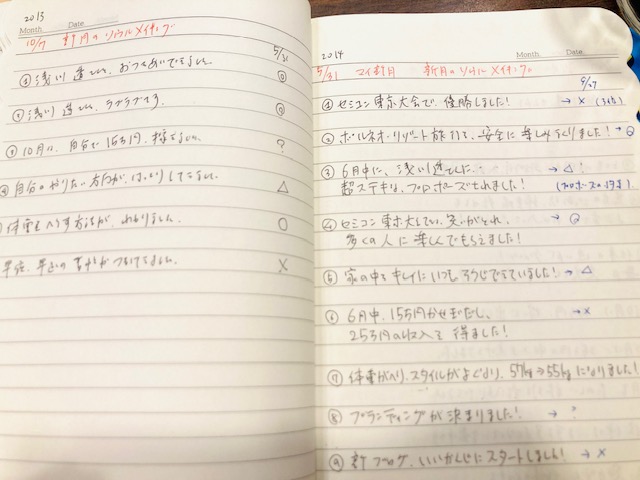 2013
Month Date
10/7 新月のソウルメイキング
5/31
① 浅い達さん、おつきあいできました。 ◎
② 浅い達さん、ラブラブです。 ◎
③ 10月に、自分で15万円、稼ぎました。 ?
④ 自分のやりたい方向が、はっきりしてきました。 △
体重をへらす方法が、わかりました。 ○
早寝、早起きの習慣がつきました。 ×
2014
Month Date
5/31 マイ新月 新月のソウルメイキング。
6/27
① セミコン東京大会で、優勝しました! → × (3位)
② ボルネオ・リゾート旅行を、安全に楽しみきりました! → ◎
③ 6月中に、浅い達さんに、 → △!
超ステキな、プロポーズされました!
④ セミコン東京大会で、笑いがとれ、 → ◎
多くの人に楽しんでもらえました!
⑤ 家の中をキレイにいつもそうじできていました! → △
⑥ 6月中、15万円かせぎだし、 → ×
25万円の収入を得ました!
⑦ 体重がへり、スタイルがよくなり、57kg→55kgになりました!
⑧ ブランディングが決まりました! → ?
⑨ 新ブログ、いいかんじにスタートしました! → ×